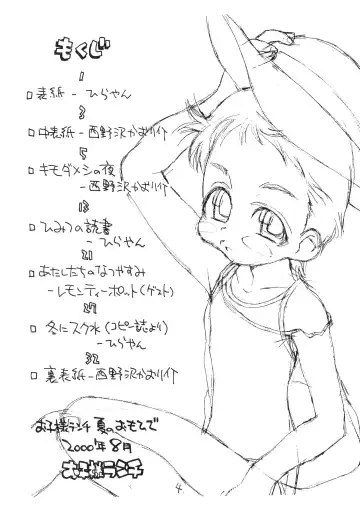 もくじ
1
□表紙-ひらやん
3
□中表紙-西野沢かおり介
5
□キモダメシの夜
-西野沢かおり介
13
□ひみつの読書
-ひらやん
21
□あたしたちのなつやすみ
-レモンティーポット(ゲスト)
27
□冬にスク水(コピー誌より)
-ひらやん
32
□裏表紙-西野沢かおり介
お子様ランチ 夏のおもひで
2000年8月
お子様ランチ
4